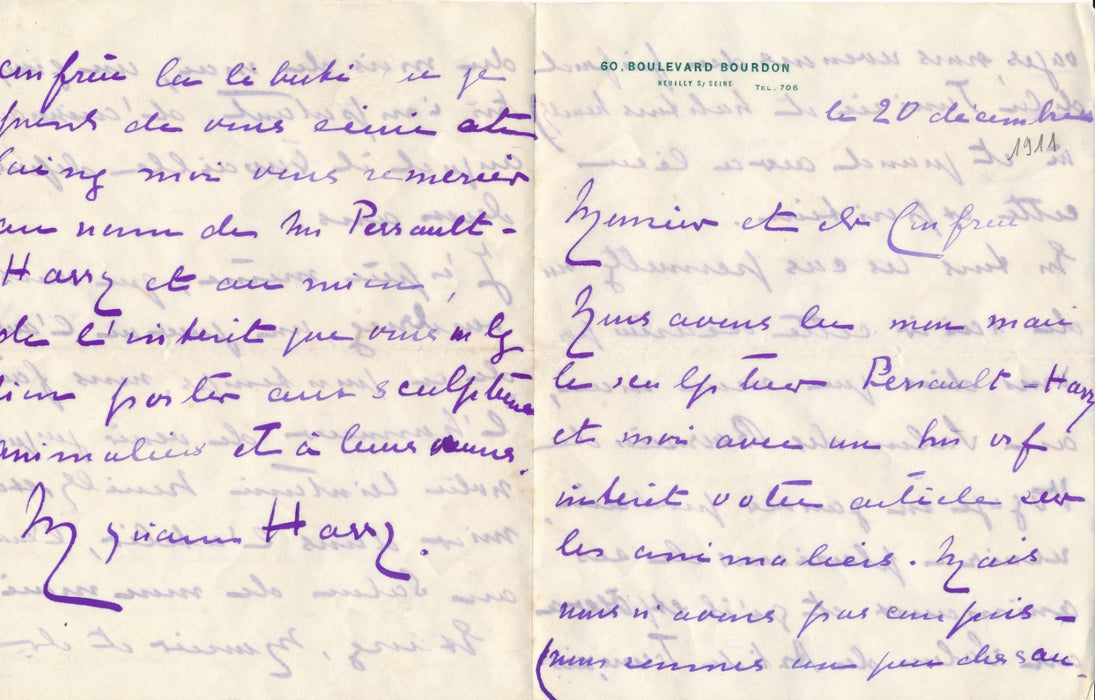 60, BOULEVARD BOURDON
NEUILLY S/ SEINE TEL. 706
le 20 décembre
1911
Monsieur et cher Confrère
Nous avons lu mon mari
le sculpteur Perrault-Harry
et moi avec un très vif
intérêt votre article sur
les animaliers. Mais
nous n'avons pas compris -
(nous sommes un peu chez au-
confrère la liberté que je
prends de vous écrire et
laissez moi vous remercier
au nom de M. Perrault-
Harry et au mien,
de l'intérêt que vous voulez
bien porter aux sculpteurs
animaliers et à leurs œuvres.
Myriam Harry.